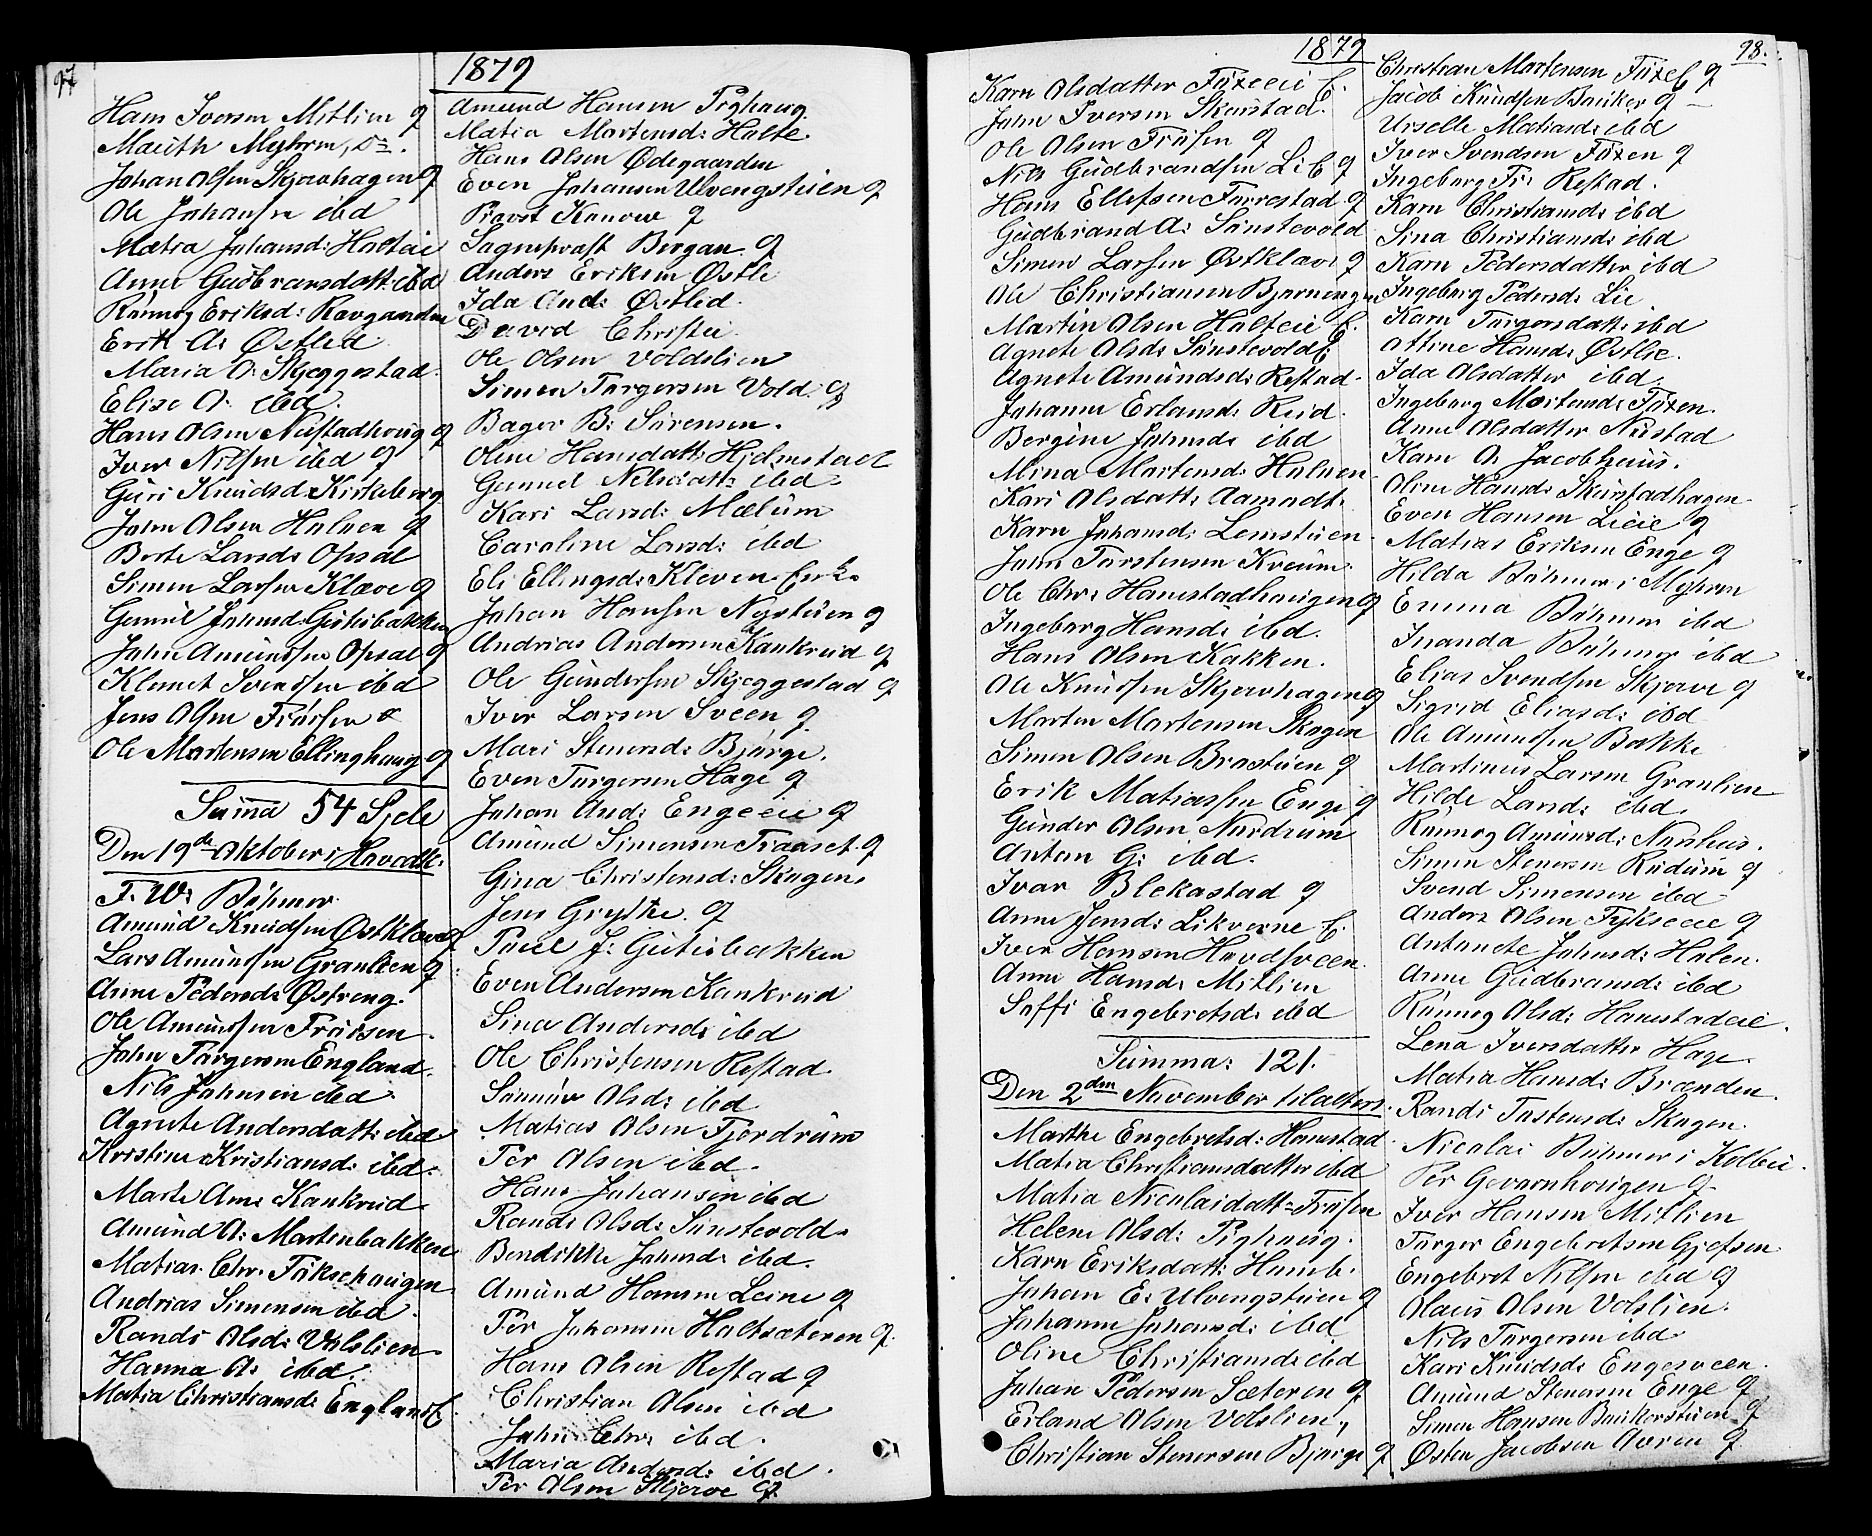 97
1879
Hans Iversen Mitlien g
Marith Myhren, Do.
Johan Olsen Skjervhagen g
Ole Johansen ibd
Matea Johansd: Holteie
Anne Gudbransdatt: ibd
Rønnog Eriksd: Ravganden
Erik A: Østlid
Maria O: Skjeggestad.
Elise O: ibd.
Hans Olsen Nustadhoug g
Iver Nilsen ibd g
Guri Knudsd: Kirkeberg
John Olsen Holven g
Berte Larsd: Opsal
Simen Larsen Klæve g
Gunnil Johnsd: Gutubakken
John Amundsen Opsal g
Klemet Svendsen ibd
Jens Olsen Frøisen g
Ole Martensen Ellinghaug g
Summa 54 Sjele
Den 19de Oktober i Hovedk:
F. W: Bøhmer
Amund Knudsen Østklæve g
Lars Amundsen Granlien g
Anne Pedersd: Østreng.
Ole Amundsen Frøisen.
John Torgersen England.
Nils Johnsen ibd.
Agnete Andersdatt: ibd
Kristine Kristiansd: ibd.
Marte Am: Kankrud
Amund A: Martinbakken
Matias Chr: Føksehougen
Andrias Simensen ibd.
Randi Olsd: Volslien
Hanna O: ibd.
Matia Christiansd: England f.
Amund Hansen Pighaug.
Matia Martensd: Holte.
Hans Olsen Ødegaarden
Even Johansen Ulvengstuen g
Provst Kanow g
Sogneprest Borgan. g
Anders Eriksen Østli
Ida And: Østlid.
David Christie
Ole Olsen Voldslien
Simen Torgersen Vold. g
Bager B: Sørensen.
Oline Hansdatt: Hjelmstad
Gunnel Nelsdatt: ibd.
Kari Larsd: Mælum
Caroline Larsd: ibd
Eli Ellingsd: Kleven Enke
Johan Hansen Nystuen g
Andrias Andersen Kankrud g
Ole Gundersen Skjeggestad g
Iver Larsen Sveen g.
Mari Stenersd: Bjørge.
Even Torgersen Hage g
Johan And: Engeeie g
Amund Simensen Traaset. g
Gina Christensd: Skogen.
Jens Grythe. g
Poul J: Gutubakken
Even Andersen Kankrud
Sina Andersd: ibd
Ole Christensen Rostad.
Sønnøv Olsd: ibd
Matias Olsen Fjordrum
Per Olsen ibd.
Hans Johansen ibd
Randi Olsd: Sønstevold.
Bendikke Johnsd: ibd.
Amund Hansen Leine g
Per Johansen Holtsæteren g.
Hans Olsen Rostad g
Christian Olsen ibd
John Chr: ibd.
Maria Andersd: ibd.
Per Olsen Skjerve g.
1879
98.
Karn Olsdatter Foxeeie E.
John Iversen Skarstad.
Ole Olsen Frøisen g
Nils Gudbrandsen Lie g
Hans Ellefsen Forrestad. g
Gudbrand A: Sønstevold
Simen Larsen Østklæve g
Ole Christiansen Bjørnengen
Martin Olsen Holteie E.
Agnete Olsd: Sønstevold E
Agnete Amundsd: Rostad.
Johanne Erlansd: Reid.
Bergine Johnsd: ibd
Mina Martensd: Holven
Kari Olsdatt: Aamodt.
Karn Johansd: Lemstuen
John Torstensen Kreum.
Ole Chr: Hanestadhaugen g
Ingeborg Hansd: ibd.
Hans Olsen Kakken.
Ole Knudsen Skjervhagen g
Morten Martensen Skogen
Simen Olsen Brostuen g
Erik Matiassen Enge g
Gunder Olsen Nordrum
Anton G: ibd.
Ivar Blekastad g
Anne Jensd: Likverne E.
Iver Hansen Hovdsveen.
Anne Hansd: Mitlien
Soffi Engebretsd: ibd
Summa: 121.
Den 2den November til alters:
Marthe Engebretsd: Hanestad.
Matia Christiansdatter ibd
Matia Nicolaidatt: Frøisen
Helene Olsd: Pighaug.
Karn Eriksdatt: Homb.
Johan E: Ulvengstuen g
Johanne Johansd: ibd
Oline Christiansd: ibd
Johan Pedersen Sæteren g
Erland Olsen Volslien,
Christian Stenersen Bjørge g
Christian Martensen Foxe E g
Jacob Knudsen Bauker g
Urselle Matiasd: ibd
Iver Svendsen Foxen g
Ingeborg Tr: Rostad.
Karn Christiansd: ibd
Sina Christiansd: ibd
Karn Pedersdatter ibd
Ingeborg Pedersd: Lie
Karn Torgersdatt: ibd
Attine Hansd: Østlie.
Ida Olsdatter ibd.
Ingeborg Mortensd: Foxen.
Anne Olsdatter Nustad
Karn O: Jacobhuus.
Oline Hansd: Skurstadhagen.
Even Hansen Lieie g
Matias Eriksen Enge g
Hilda Bøhmer i Myhren
Emma Bøhmer ibd
Inanda Bøhmer ibd
Elias Svendsen Skjerve g
Sigrid Eliasd: ibd
Ole Amundsen Bakke
Martinus Larsen Granlien
Hilde Larsd: ibd
Rønnog Amundsd: Nørsteus.
Simen Stenersen Rudum g
Svend Simensen ibd
Anders Olsen Fykseeie g
Antonete Johnsd: Holen.
Anne Gudbransd: ibd
Rønnog Olsd: Hanestadeie.
Lena Iversdatter Hage.
Matia Hansd: Brænden.
Randi Tostensd: Skogen.
Nicolai Bøhmer i Kolbu.
Per Gevarnhougen g
Iver Hansen Mitlien
Torger Engebretsen Gjefsen
Engebret Nilsen ibd g
Olaus Olsen Volslien.
Nils Torgersen ibd
Kari Knudsd: Engesveen.
Amund Stenersen Enge g
Simen Hansen Baukerstuen g
Østen Jacobsen Aaren g